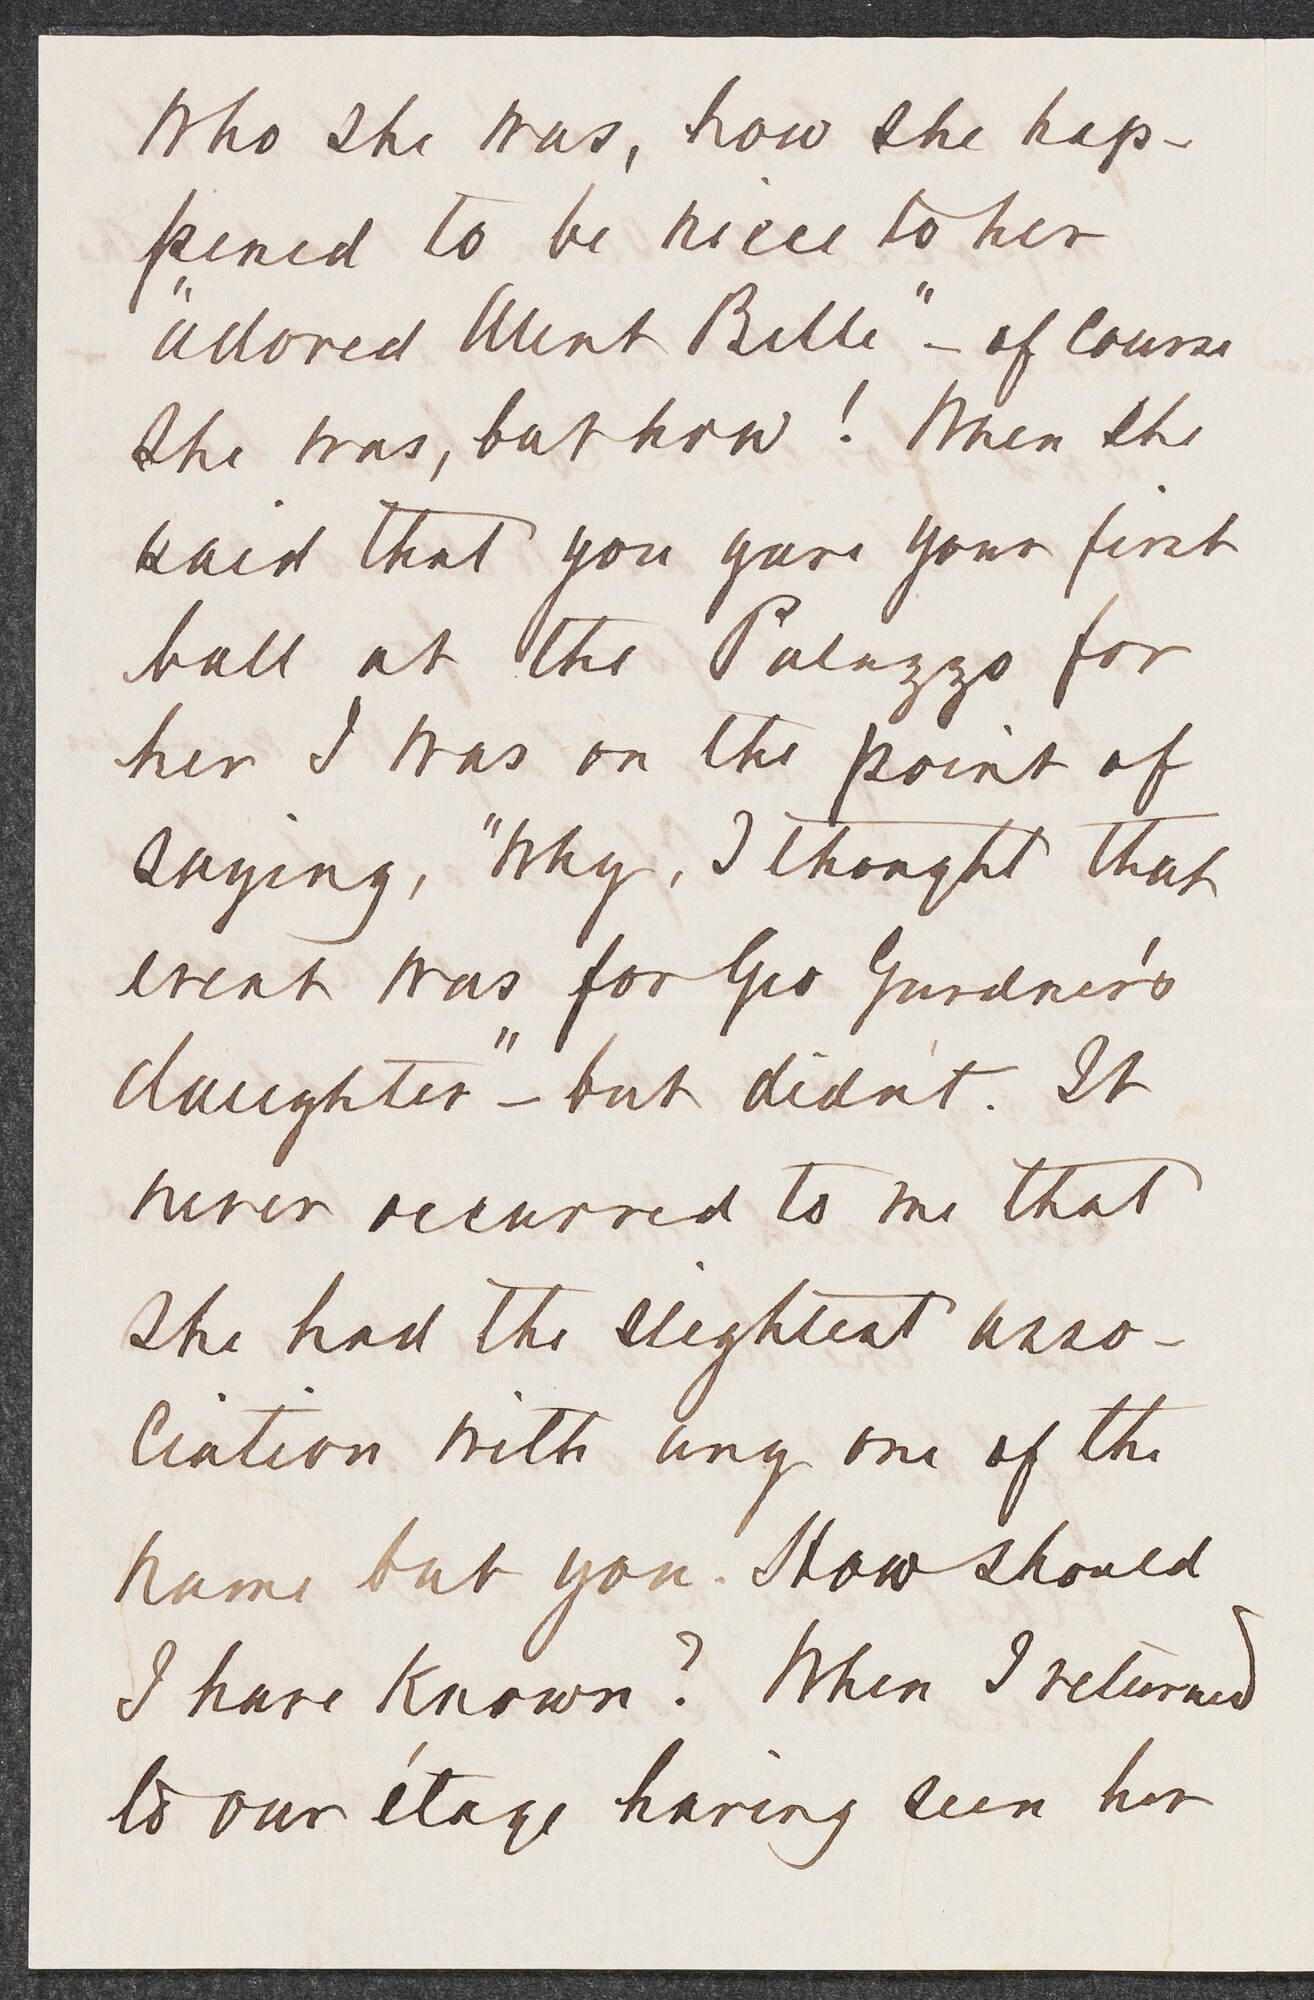 Who she was, how she hap-
pened to be niece to her
"adored Aunt Belle" - of course
she was, but how! When she
said that you gave your first
ball at the Palazzo for
her I was on the point of
saying, "Why, I thought that
event was for Geo Gardner's
daughter" - but didn't. It
never occurred to me that
she had the slightest asso-
ciation with any one of the
name but you. How should
I have known? When I returned
to our étage having seen her